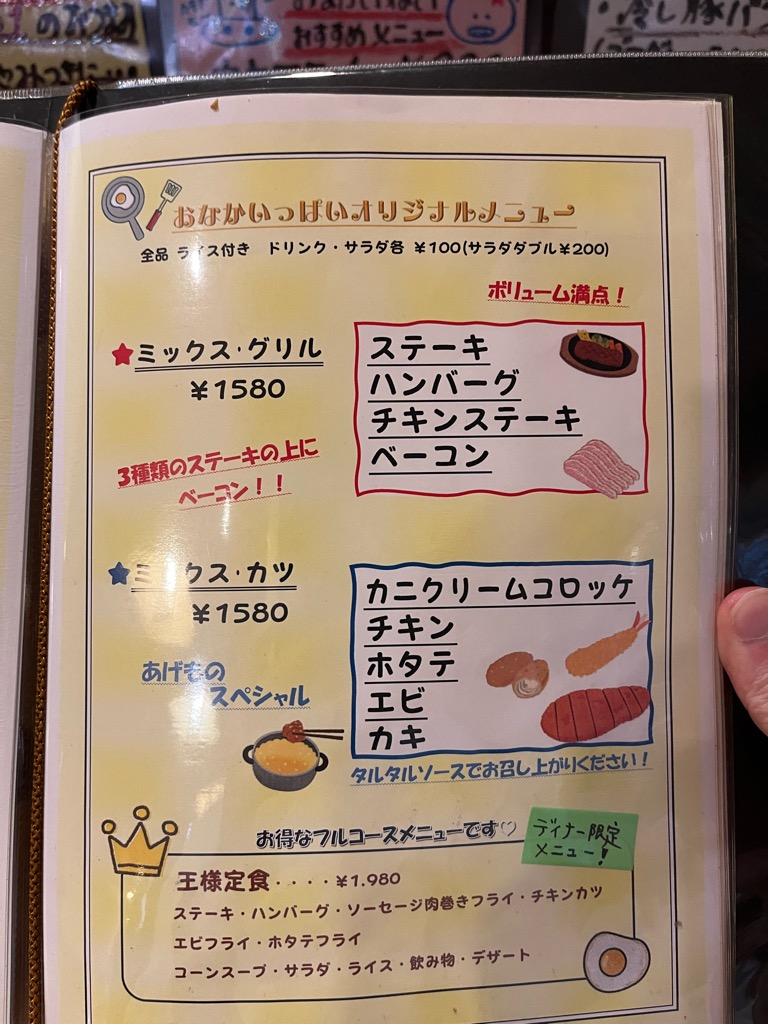 おすすめメニュー
おなかいっぱいオリジナルメニュー
全品 ライス付き　ドリンク・サラダ各 ￥100(サラダダブル￥200)
ボリューム満点！
★ミックス・グリル
￥1580
ステーキ
ハンバーグ
チキンステーキ
ベーコン
3種類のステーキの上に
ベーコン！！
★ミックス・カツ
￥1580
カニクリームコロッケ
チキン
ホタテ
エビ
カキ
あげもの
スペシャル
タルタルソースでお召し上がりください！
お得なフルコースメニューです♡
ディナー限定
メニュー！
王様定食・・・・￥1.980
ステーキ・ハンバーグ・ソーセージ肉巻きフライ・チキンカツ
エビフライ・ホタテフライ
コーンスープ・サラダ・ライス・飲み物・デザート